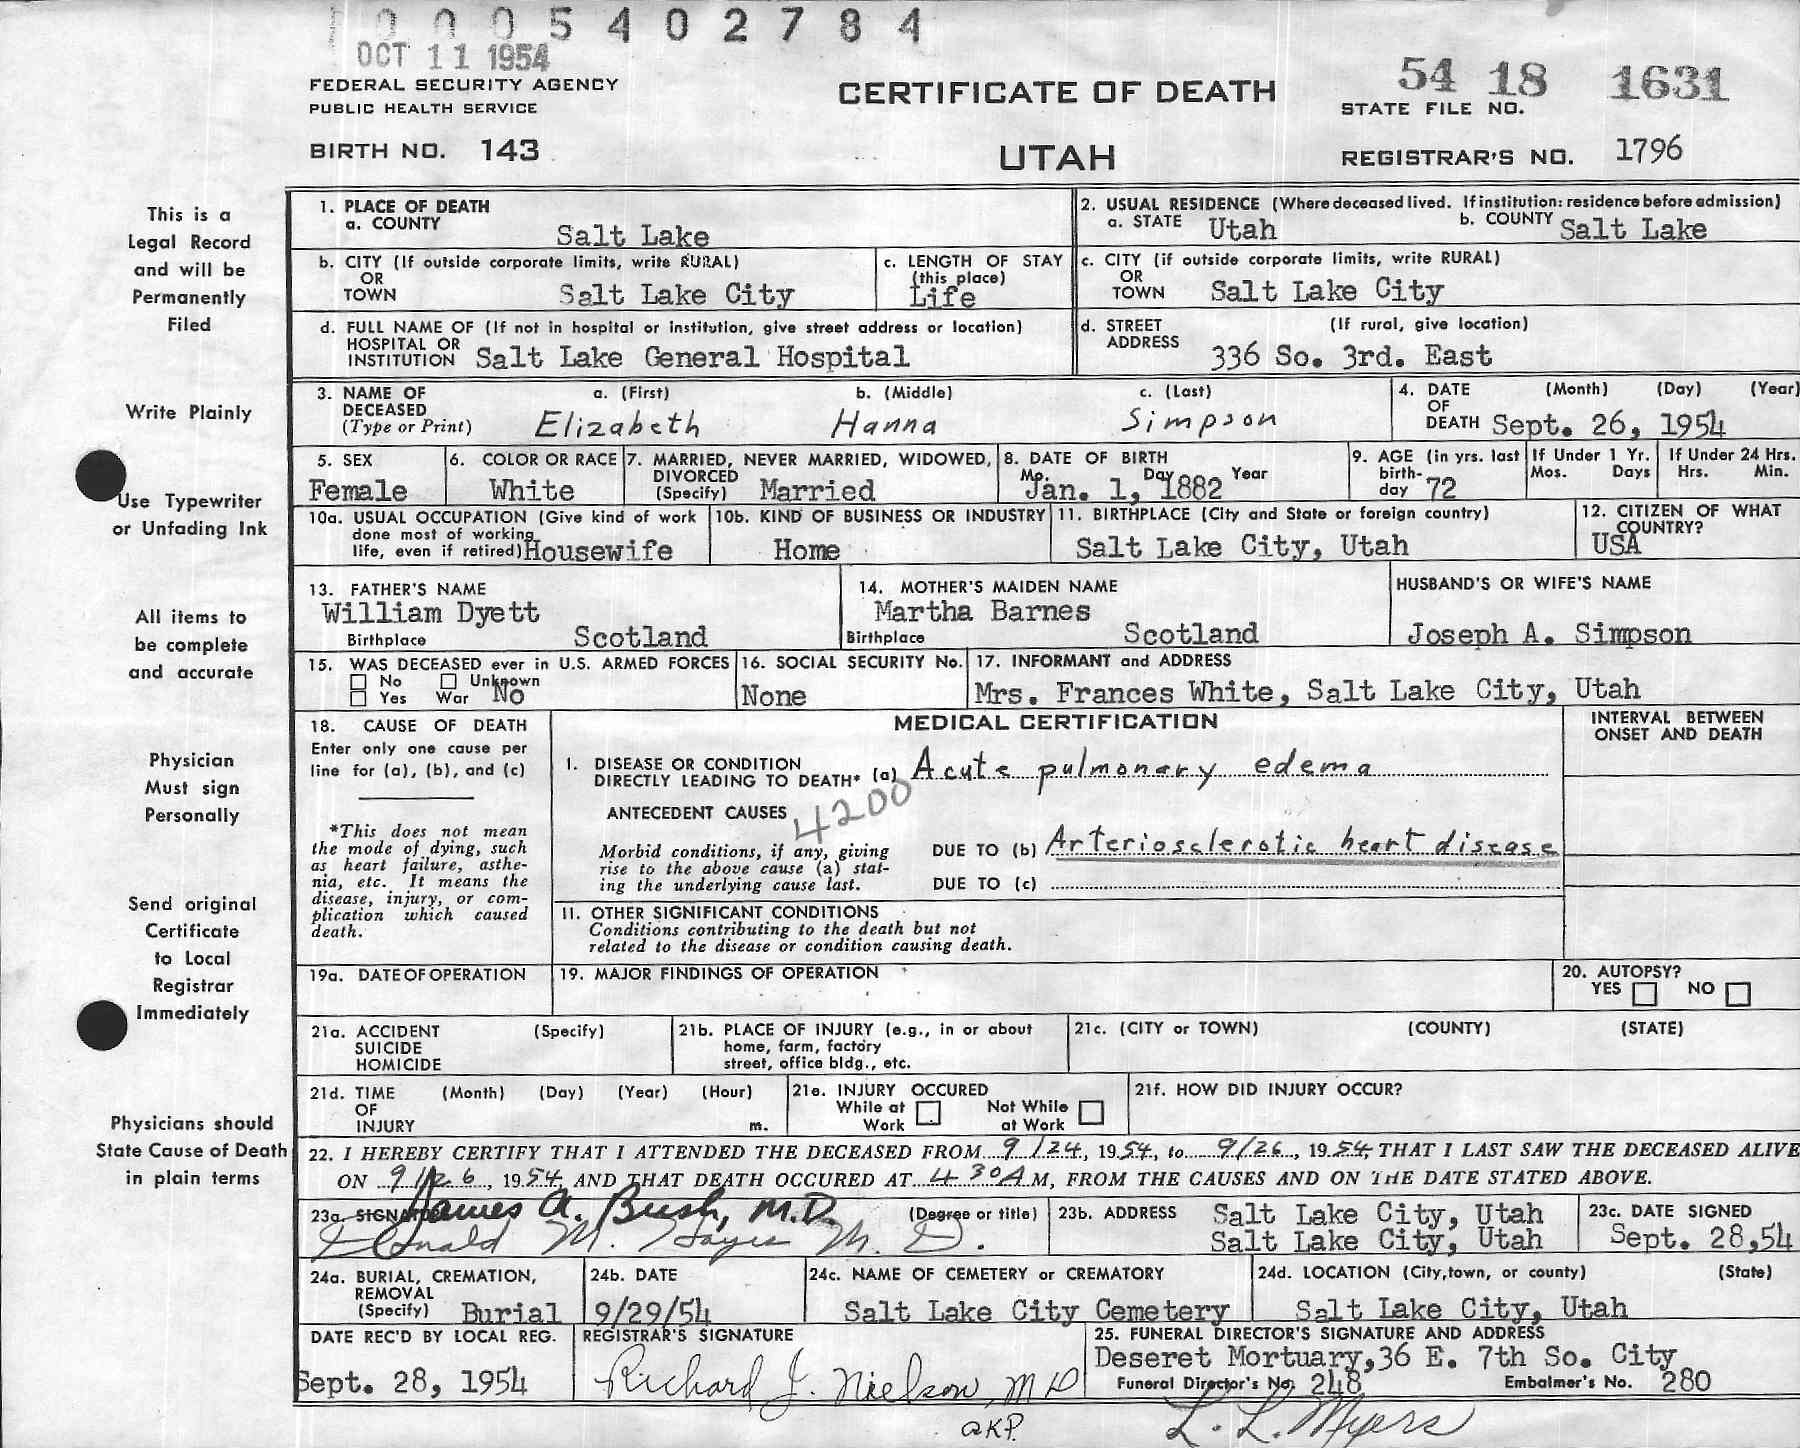 0005402784
OCT 11 1954
FEDERAL SECURITY AGENCY
PUBLIC HEALTH SERVICE
BIRTH NO. 143
CERTIFICATE OF DEATH
UTAH
54 18 1631
STATE FILE NO.
REGISTRAR'S NO. 1796
This is a
Legal Record
and will be
Permanently
Filed
Write Plainly
Use Typewriter
or Unfading Ink
All items to
be complete
and accurate
Physician
Must sign
Personally
Send original
Certificate
to Local
Registrar
Immediately
Physicians should
State Cause of Death
in plain terms
1. PLACE OF DEATH
a. COUNTY
Salt Lake
2. USUAL RESIDENCE (Where deceased lived. If institution: residence before admission)
a. STATE Utah b. COUNTY Salt Lake
b. CITY (If outside corporate limits, write RURAL)
OR
TOWN Salt Lake City
c. LENGTH OF STAY
(this place)
Life
c. CITY (if outside corporate limits, write RURAL)
OR
TOWN Salt Lake City
d. FULL NAME OF (If not in hospital or institution, give street address or location)
HOSPITAL OR
INSTITUTION Salt Lake General Hospital
d. STREET (If rural, give location)
ADDRESS
336 So. 3rd. East
3. NAME OF a. (First) b. (Middle) c. (Last)
DECEASED
(Type or Print) Elizabeth Hanna Simpson
4. DATE (Month) (Day) (Year)
OF
DEATH Sept. 26, 1954
5. SEX
Female
6. COLOR OR RACE
White
7. MARRIED, NEVER MARRIED, WIDOWED,
DIVORCED
(Specify) Married
8. DATE OF BIRTH
Mo. Day Year
Jan. 1, 1882
9. AGE (in yrs. last
birth-
day 72
If Under 1 Yr.
Mos. Days
If Under 24 Hrs.
Hrs. Min.
10a. USUAL OCCUPATION (Give kind of work
done most of working
life, even if retired) Housewife
10b. KIND OF BUSINESS OR INDUSTRY
Home
11. BIRTHPLACE (City and State or foreign country)
Salt Lake City, Utah
12. CITIZEN OF WHAT
COUNTRY?
USA
13. FATHER'S NAME
William Dyett
Birthplace Scotland
14. MOTHER'S MAIDEN NAME
Martha Barnes
Birthplace Scotland
HUSBAND'S OR WIFE'S NAME
Joseph A. Simpson
15. WAS DECEASED ever in U.S. ARMED FORCES
No Unknown
Yes War No
16. SOCIAL SECURITY No.
None
17. INFORMANT and ADDRESS
Mrs. Frances White, Salt Lake City, Utah
18. CAUSE OF DEATH
Enter only one cause per
line for (a), (b), and (c)
*This does not mean
the mode of dying, such
as heart failure, asthe-
nia, etc. It means the
disease, injury, or com-
plication which caused
death.
MEDICAL CERTIFICATION
INTERVAL BETWEEN
ONSET AND DEATH
I. DISEASE OR CONDITION
DIRECTLY LEADING TO DEATH* (a) Acute pulmonary edema
ANTECEDENT CAUSES 4200
Morbid conditions, if any, giving
rise to the above cause (a) stat-
ing the underlying cause last.
DUE TO (b) Arteriosclerotic heart disease
DUE TO (c)
II. OTHER SIGNIFICANT CONDITIONS
Conditions contributing to the death but not
related to the disease or condition causing death.
19a. DATE OF OPERATION
19. MAJOR FINDINGS OF OPERATION
20. AUTOPSY?
YES NO
21a. ACCIDENT (Specify)
SUICIDE
HOMICIDE
21b. PLACE OF INJURY (e.g., in or about
home, farm, factory
street, office bldg., etc.
21c. (CITY or TOWN) (COUNTY) (STATE)
21d. TIME (Month) (Day) (Year) (Hour)
OF
INJURY m.
21e. INJURY OCCURED
While at Not While
Work at Work
21f. HOW DID INJURY OCCUR?
22. I HEREBY CERTIFY THAT I ATTENDED THE DECEASED FROM 9/24, 1954, to 9/26, 1954, THAT I LAST SAW THE DECEASED ALIVE
ON 9/26, 1954, AND THAT DEATH OCCURED AT 4 30 A M, FROM THE CAUSES AND ON THE DATE STATED ABOVE.
23a. SIGNATURE James A. Bush, M.D. (Degree or title)
Donald M. Hayes M. D.
23b. ADDRESS Salt Lake City, Utah
Salt Lake City, Utah
23c. DATE SIGNED
Sept. 28,54
24a. BURIAL, CREMATION,
REMOVAL
(Specify) Burial
24b. DATE
9/29/54
24c. NAME OF CEMETERY or CREMATORY
Salt Lake City Cemetery
24d. LOCATION (City,town, or county) (State)
Salt Lake City, Utah
DATE REC'D BY LOCAL REG.
Sept. 28, 1954
REGISTRAR'S SIGNATURE
Richard J. Nielson, MD
25. FUNERAL DIRECTOR'S SIGNATURE AND ADDRESS
Deseret Mortuary,36 E. 7th So. City
Funeral Director's No. 248 Embalmer's No. 280
L. L. Myers